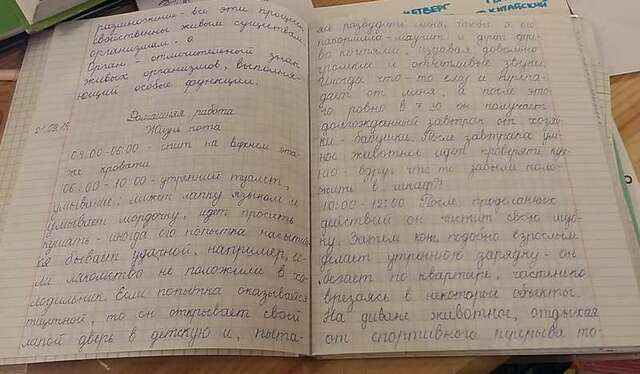 размножение - все эти процессы
свойственны живым существам,
организмам.
Орган - отличительный знак
живых организмов, выполня-
ющий особые функции.
Домашняя работа
Жизнь кота
03.00-06:00 - спит на верхнем эта-
же кровати
06:00 - 10:00 - утренний туалет,
умывание: лижет лапку языком и
умывает мордочку, идет просить
кушать - иногда его попытка насытить-
ся бывает удачной, например, ес-
ли лакомство не положили в хо-
лодильник. Если попытка оказывайся
тщетной, то он открывает своей
лапой дверь в детскую и, пыта-
ЧЕТВЕРГ
КИТАЙСКИЙ
ая разбудить меня, чтобы я его
накормила - мяучит и
когтями - издавая довольно
громкие и отчетливые звуки.
Иногда что-то ему и перепа-
дает от меня, а после это-
го ровно в 7 30 он получает
долгожданный завтрак от хозяй-
ки - бабушки. После завтрака ум-
ное животное идет проверять кух-
ню - вдруг что то забыли поло-
жить в шкаф?!
10:00 - 12:00 После проделанных
действий он чистит свою шуб-
ку. Затем кот, подобно взрослым
делает утреннюю зарядку - он
бегает по квартире, частенько
врезаясь в некоторые объекты.
На диване животное, отдыхая
от спортивного перерыва то-